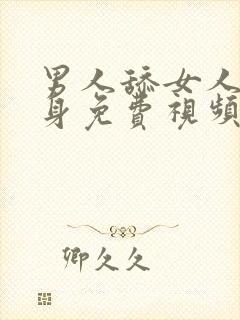 男人舔女人
身免費視頻
卿久久